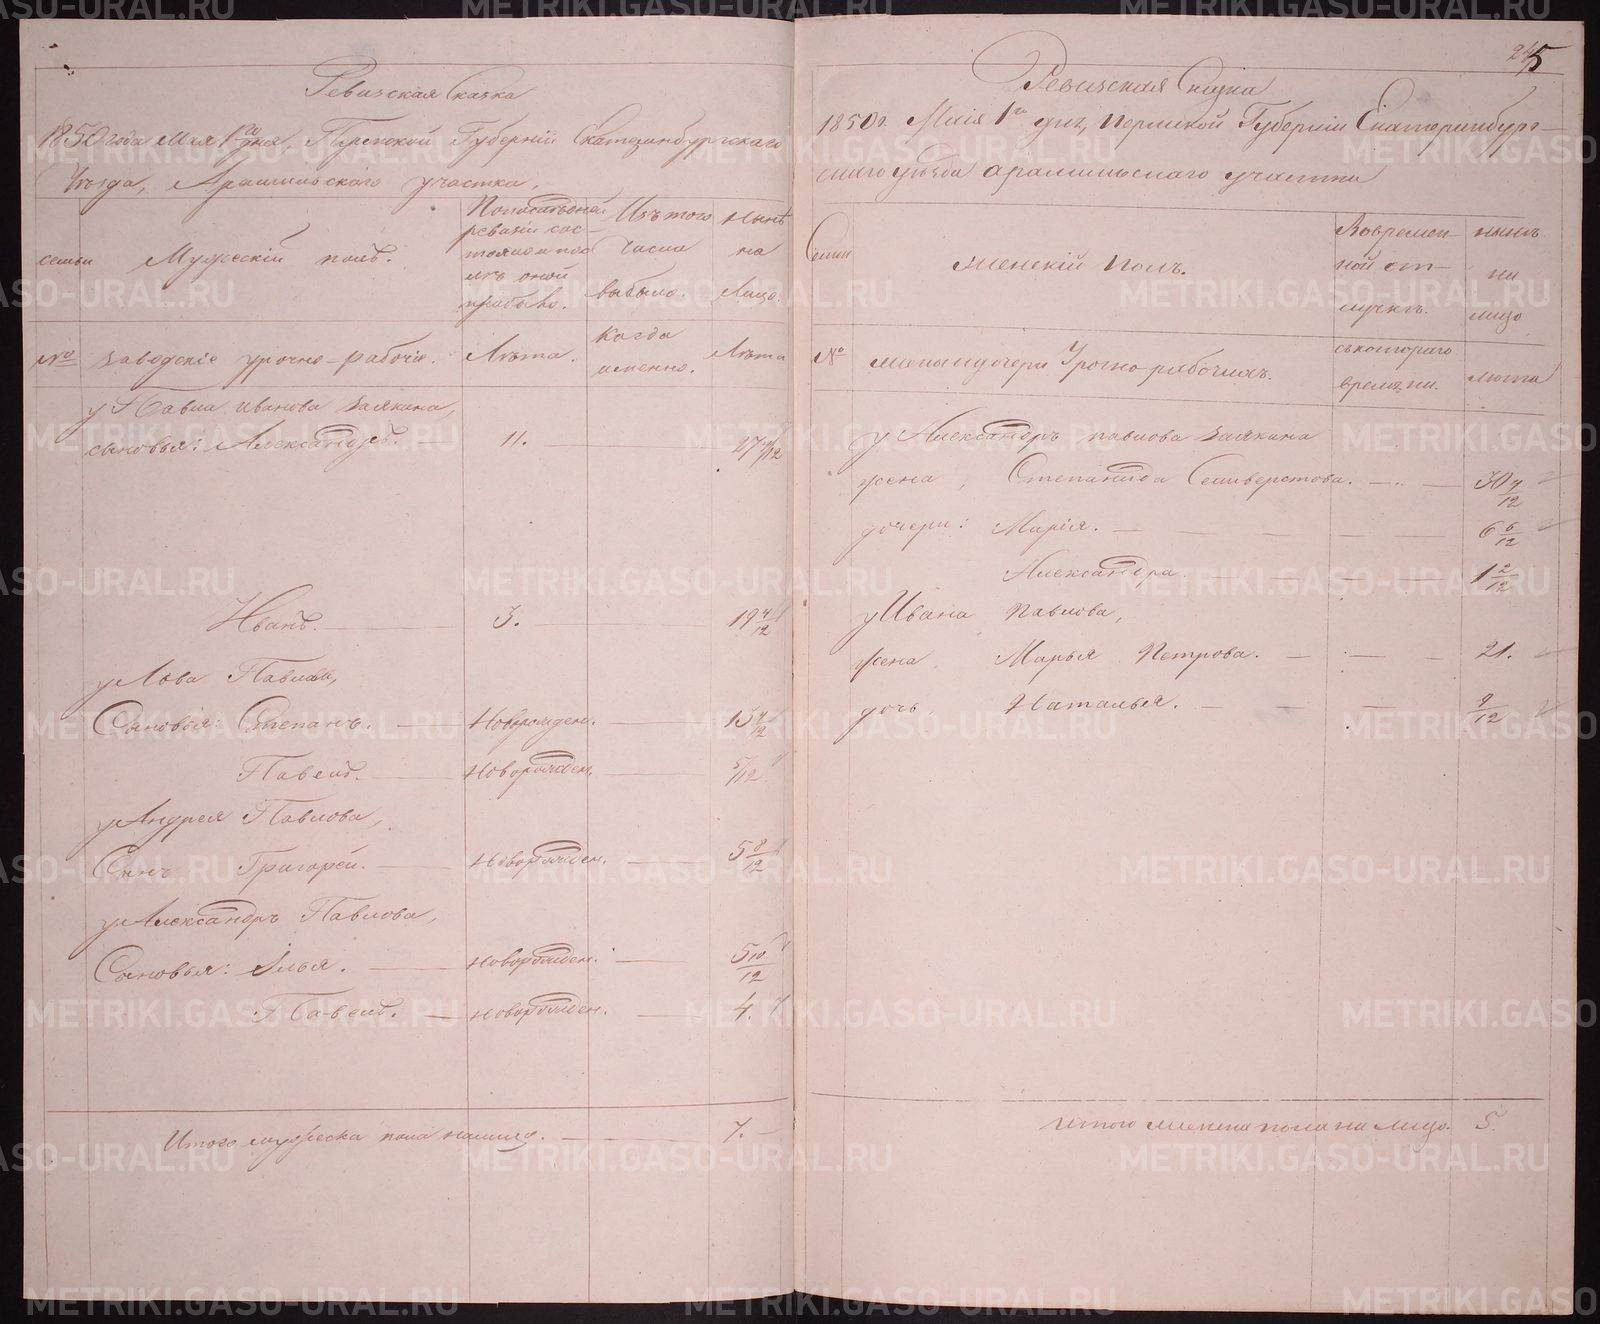 Ревизская Сказка
1850 года Мая 1го дня, Пермской Губернiи Екатеринбургскаго
Уѣзда, Арамильскаго участка,
семьи
Мужескiй полъ.
По последней
ревизiи сос-
тояло и пос
лѣ оной
прибыло.
Изъ того
числа
выбыло.
Нынѣ
на
Лицо.
№
заводскiе урочно-рабочiе.
Лѣта.
Когда
именно.
Лѣта
у Павла Иванова Заякина,
сыновья: Александръ. — 11. — 27 7/12
Иванъ. — 3. — 19 4/12
у Лова Павлова,
Сыновья: Степанъ. — Новорожден. — 13 4/12
Павелъ. — Новорожден. — 5/12
у Андрея Павлова,
Сынъ Григорей. — Новорожден. — 5 8/12
у Александръ Павлова,
Сыновья: Илья. — новорожден. — 5 10/12
Павелъ. — новорожден. — 4.
Итого мужеска пола налицо. — 7. —
245
Ревизская Сказка
1850 г. Маiя 1го дня, Пермской Губернiи Екатеринбург-
скаго уѣзда арамильскаго участка
Семьи
Женскiй Полъ.
Вовремен-
ной от-
лучкѣ.
нынѣ
на
лицо
№
жены и дочери Урочно рабочихъ.
съкотораго
времени.
лѣта
у Александръ павлова Заякина
жена, Степанида Селиверстова. — 30 7/12
дочери: Марiя. — 6 6/12
Александра. — 1 2/12
у Ивана Павлова,
жена Марья Петрова. — 21.
дочь, Наталья. — 9/12
Итого женска пола на лицо. 5.
METRIKI.GASO-URAL.RU